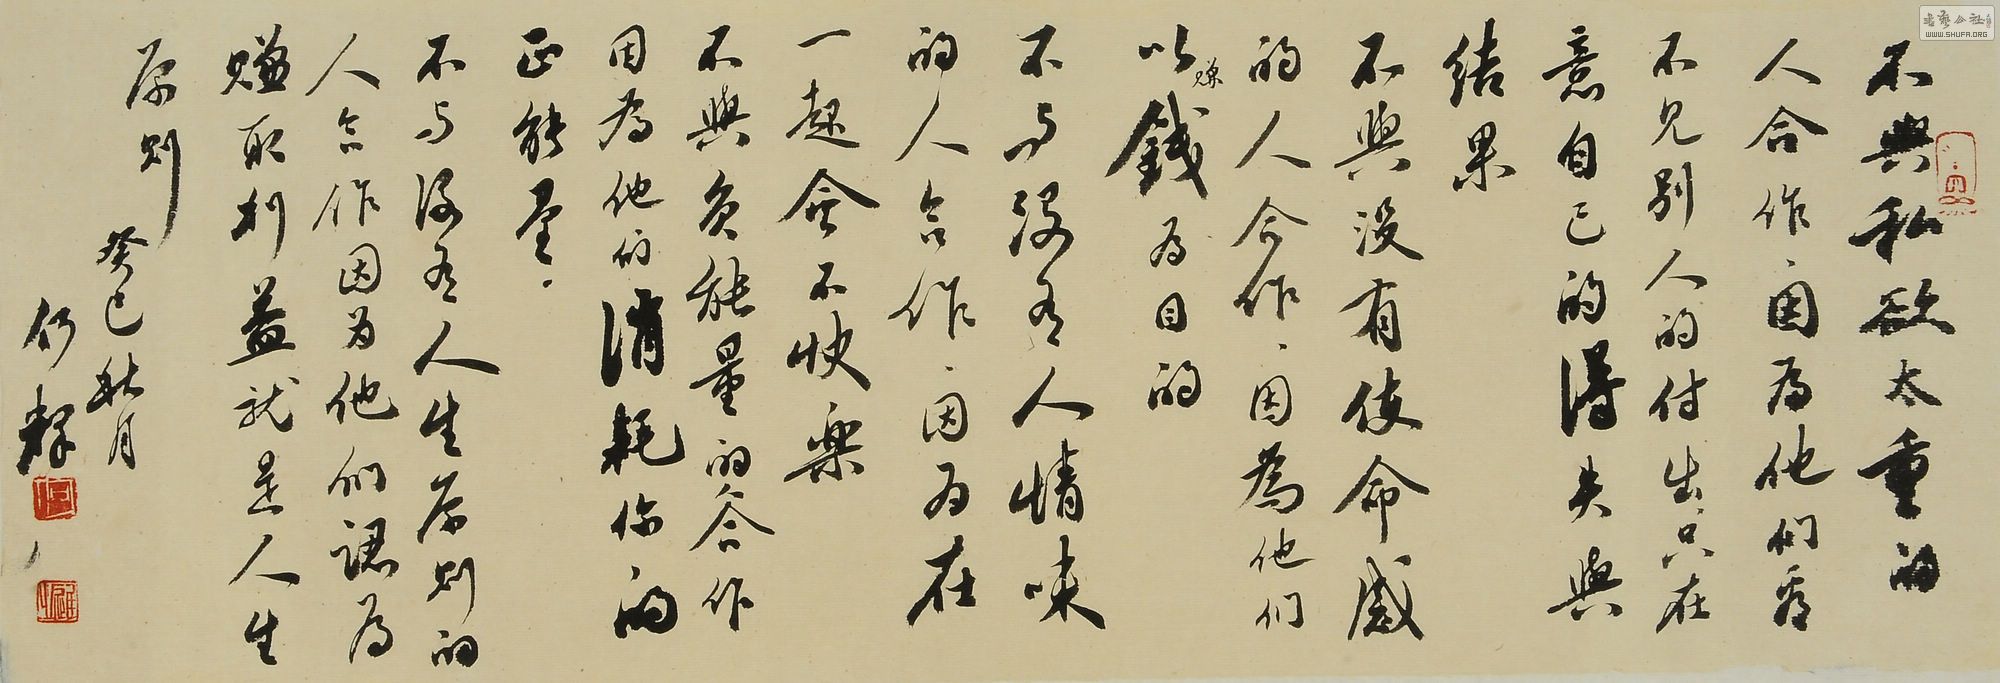 不與私欲太重的
人合作因為他们看
不見别人的付出只在
意自己的得失與
结果
不與没有使命感
的人合作因為他们
以赚錢為目的
不与没有人情味
的人合作因为在
一起会不快樂
不與負能量的合作
因為他们消耗你的
正能量
不与没有人生原则的
人合作因为他们認為
赚取利益就是人生
原则
癸巳秋月
書藝公社
WWW.SHUFA.ORG